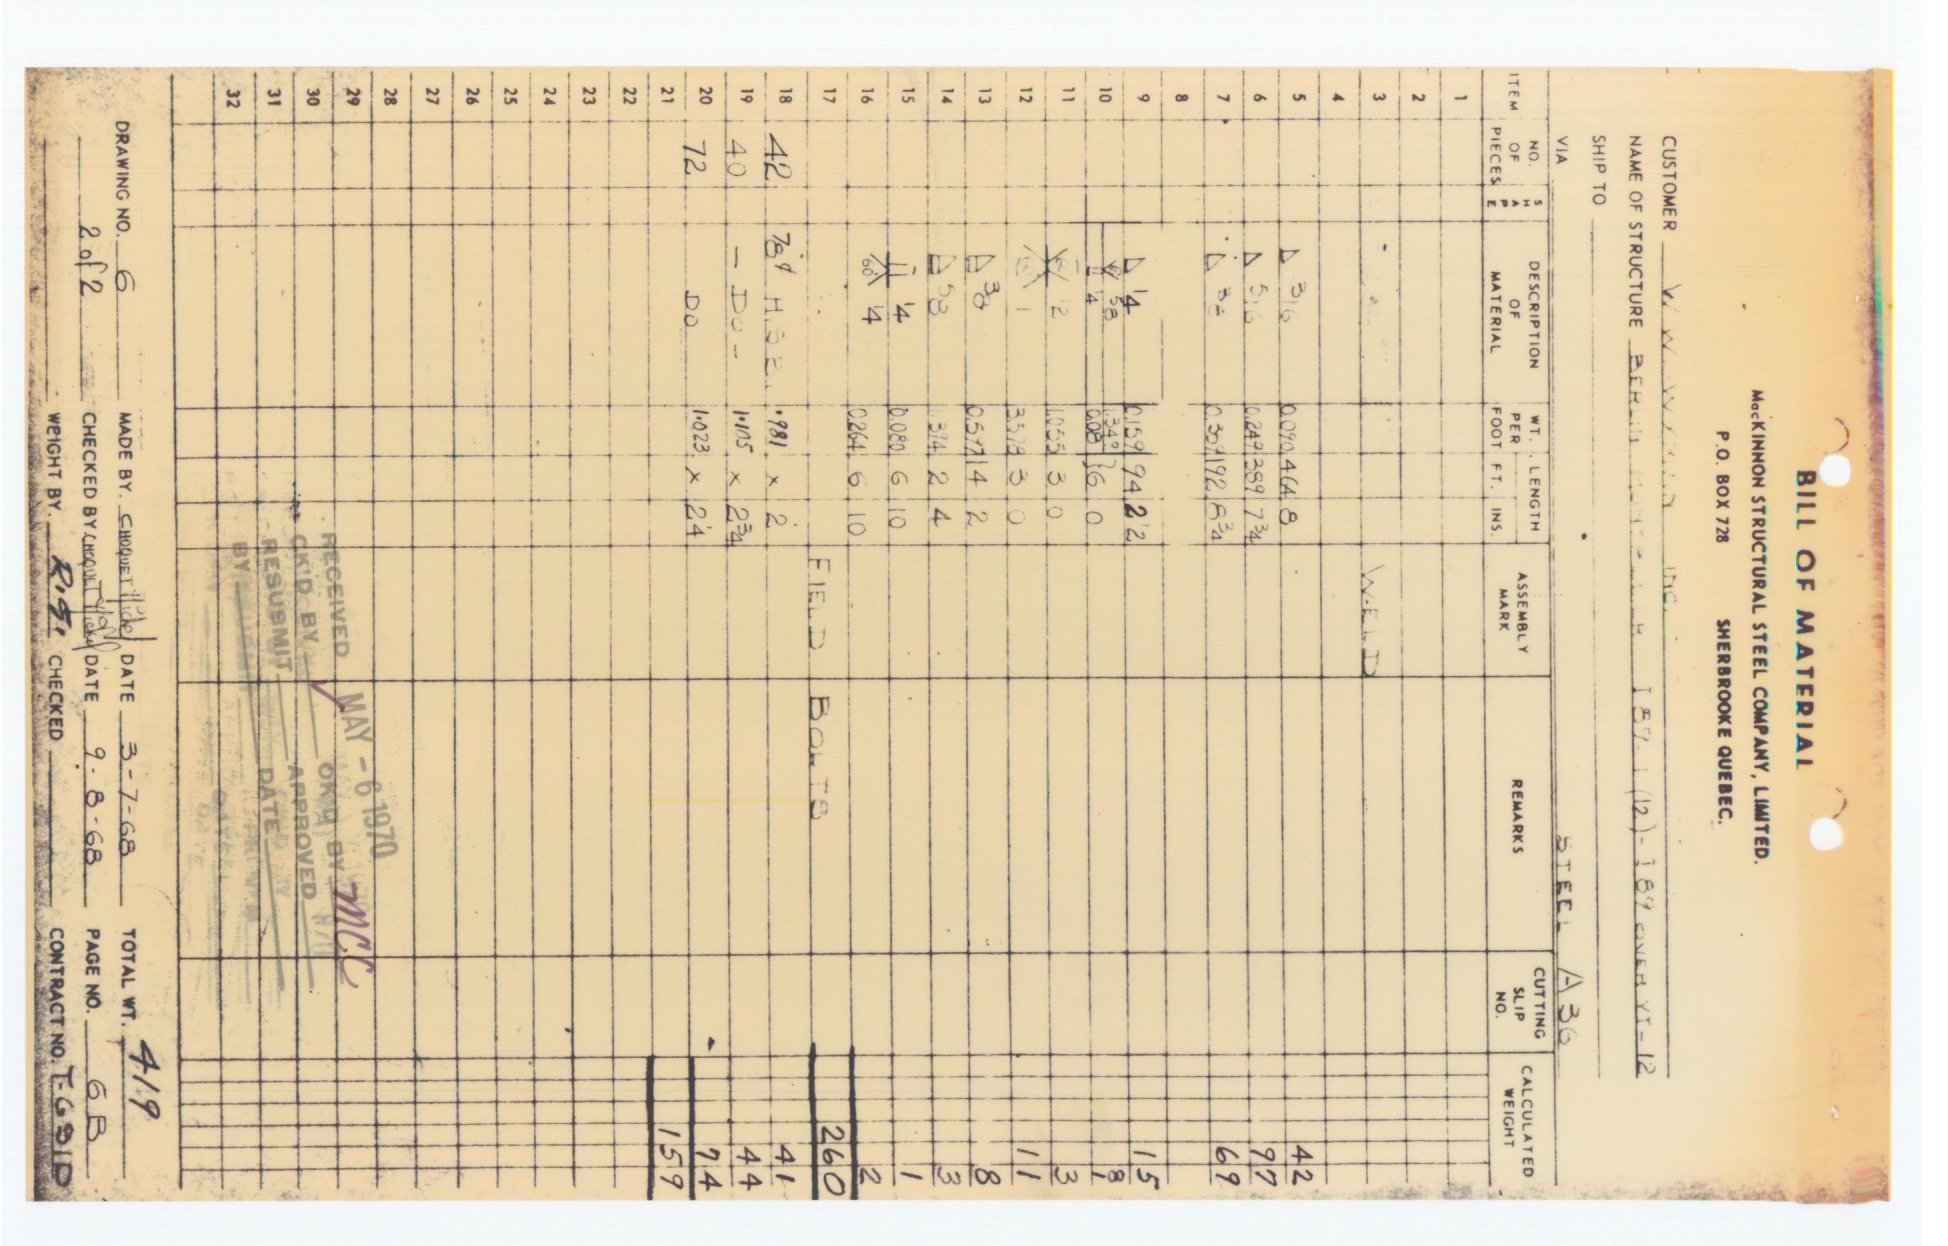 BILL OF MATERIAL
MacKINNON STRUCTURAL STEEL COMPANY, LIMITED.
P.O. BOX 728 SHERBROOKE QUEBEC.
CUSTOMER
NAME OF STRUCTURE 189-1(12)-189 OVER VT-12
SHIP TO
VIA STEEL A36
ITEM NO. OF PIECES SHAPE DESCRIPTION OF MATERIAL WT. PER FOOT LENGTH FT. INS. ASSEMBLY MARK REMARKS CUTTING SLIP NO. CALCULATED WEIGHT
1
2
3 WELD
4
5 3/16 0.090 464 8 42
6 5/16 0.249 389 7 3/4 97
7 192 8 3/4 69
8
9 1/4 0.159 94 2 1/2 15
10 5/8 1/4 1.349 0.08 } 6 0 8 1
11 1/2 1.055 3 0 3
12 1 3.573 3 0 11
13 3/8 0.597 14 2 8
14 5/8 1.374 2 4 3
15 1/4 0.080 6 10 1
16 60 1/4 0.264 6 10 2
17 FIELD BOLTS 260
18 42 7/8φ H.S.B. .981 x 2 41
19 40 - DO - 1.105 x 2 3/4 44
20 72 DO 1.023 x 2 1/4 74
21 159
22
23
24
25
26
27
28
29
30
31
32
RECEIVED MAY - 6 1970
CK'D BY OK'D BY MCC
RESUBMIT APPROVED
BY DATE
DRAWING NO. 6 MADE BY. CHOQUETTE DATE 3-7-68 TOTAL WT. 419
2 of 2 CHECKED BY CHOQUETTE DATE 9-8-68 PAGE NO. 6B
WEIGHT BY. CHECKED CONTRACT NO. T-691D